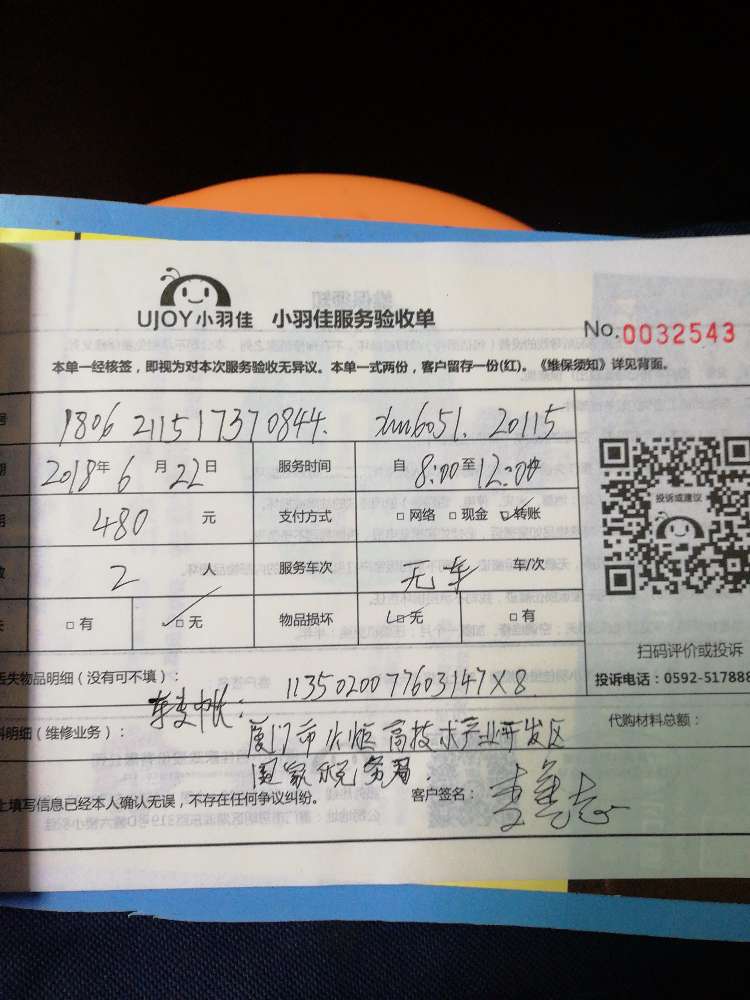 UJOY小羽佳 小羽佳服务验收单
No.0032543
本单一经核签，即视为对本次服务验收无异议。本单一式两份，客户留存一份(红)。《维保须知》详见背面。
号 1806 211517370844. xm6051. 20115
期 2018年 6 月 22 日 服务时间 自 8:00至12:00
480 元 支付方式 □网络 □现金 □转账
2 人 服务车次 无车 车/次
□有 □无 物品损坏 □无 □有
投诉或建议
扫码评价或投诉
投诉电话：0592-517888
丢失物品明细（没有可不填）： 1135020077603147X8
料明细（维修业务）： 厦门市火炬高技术产业开发区
国家税务局.
代购材料总额：
上填写信息已经本人确认无误，不存在任何争议纠纷。 客户签名：